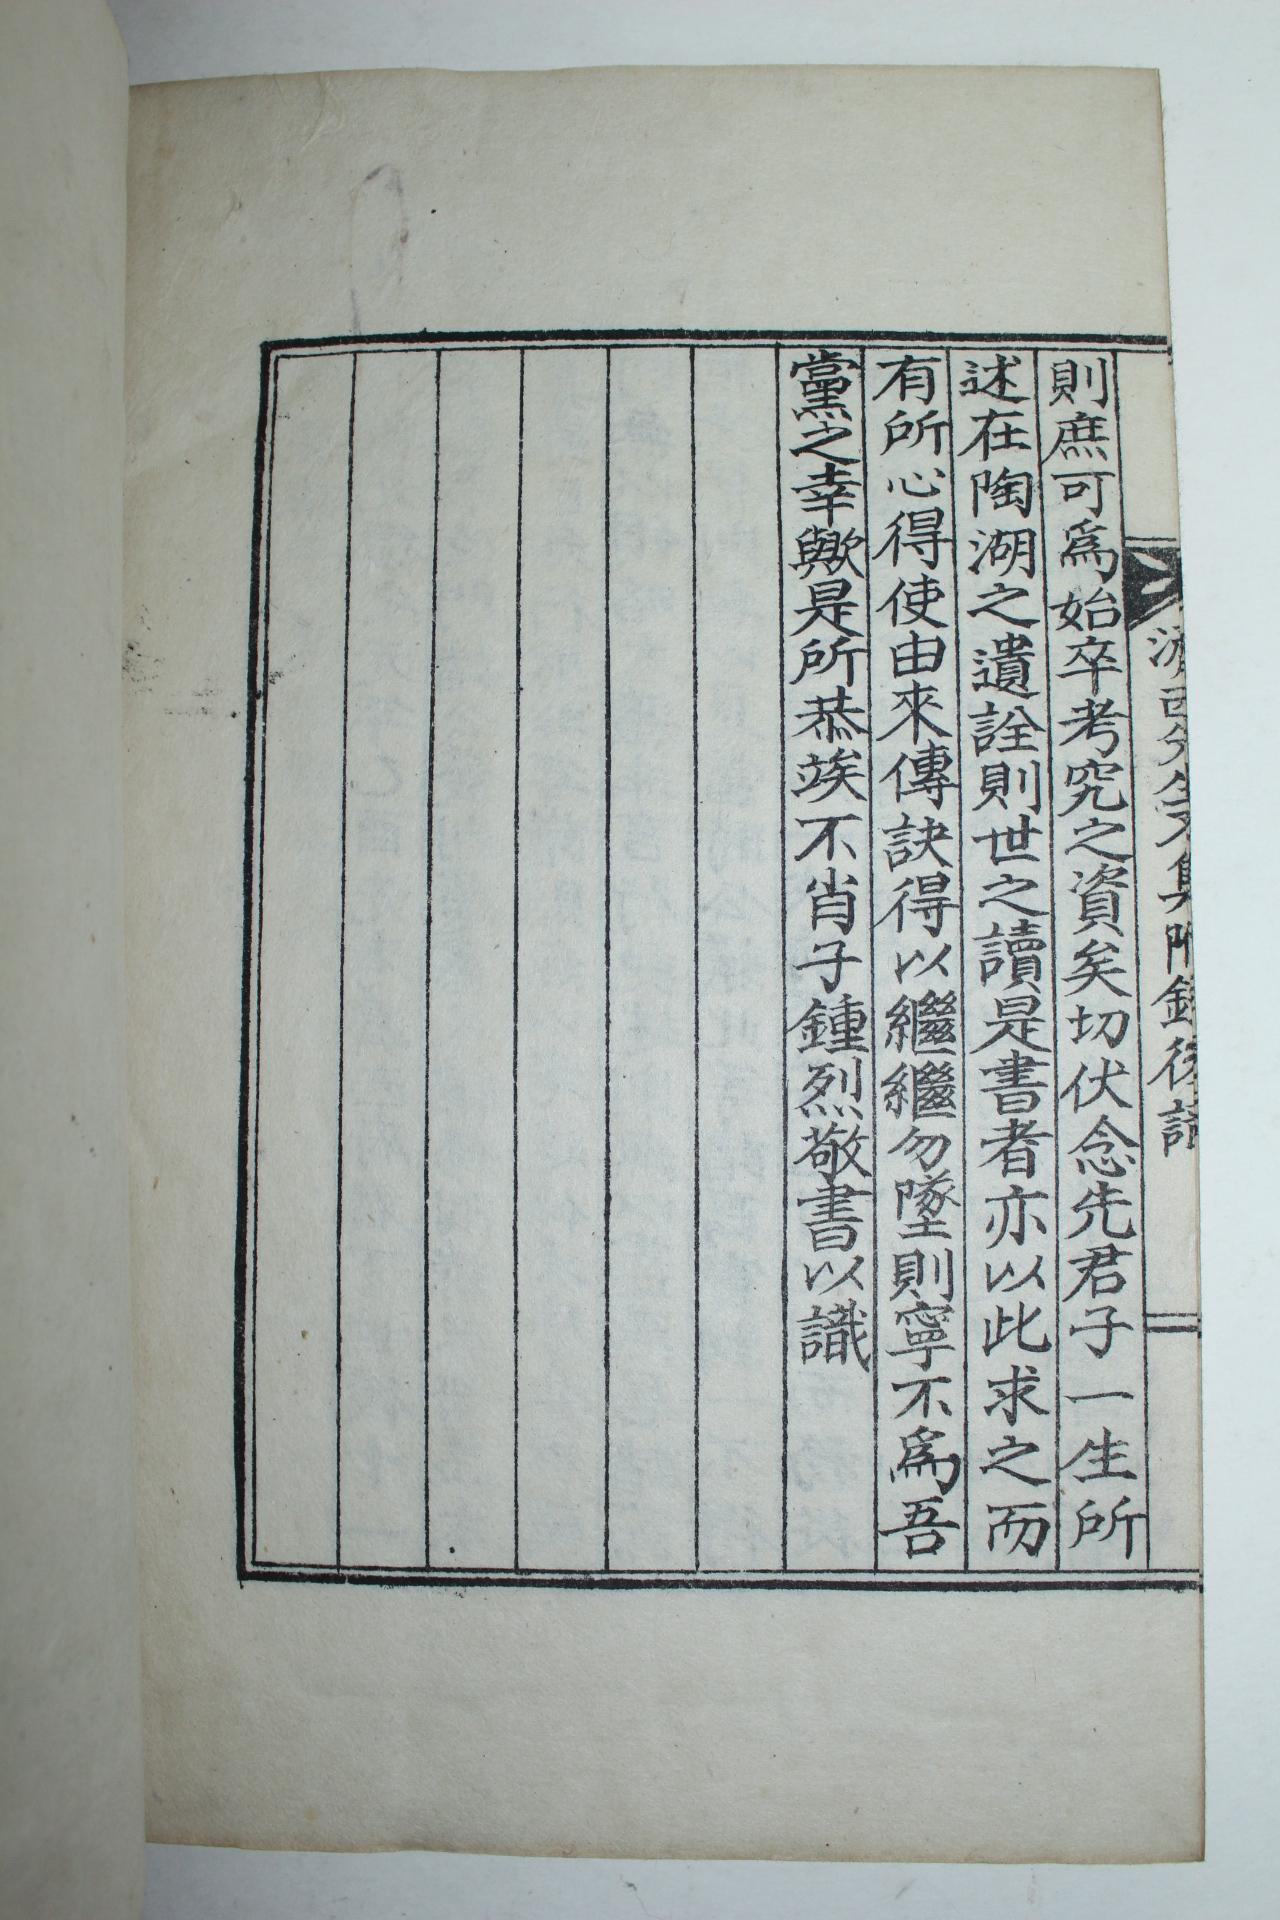 則庶可爲始卒考究之資矣切伏念先君子一生所
述在陶湖之遺詮則世之讀是書者亦以此求之而
有所心得使由來傳訣得以繼繼勿墜則寧不爲吾
黨之幸歟是所恭竢不肖子鍾烈敬書以識
西先生文集附錄後